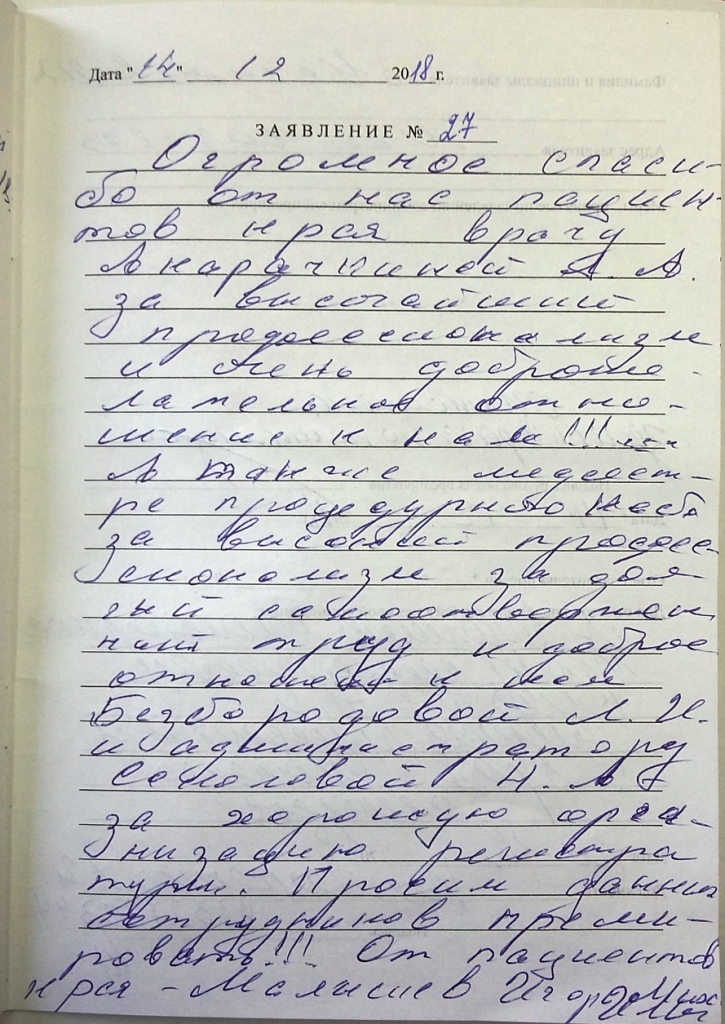 Дата "14" 12 2018 г.
ЗАЯВЛЕНИЕ № 27
Огромное спаси-
бо от нас пациен-
тов врачу
А. А.
за высочайший
профессионализм
и очень доброже-
лательное отно-
шение к нам!!!
А также медсест-
ре процедурного
за высокий професс
сионализм за дол
гий самоотвержен
ный труд и доброе
отношение к нам
Безбородовой Л. И.
и администратору
Н. А
за хорошую орга-
низацию регистра
туры. Просим данных
сотрудников преми-
ровать!!! От пациентов
- Малышев Игорь